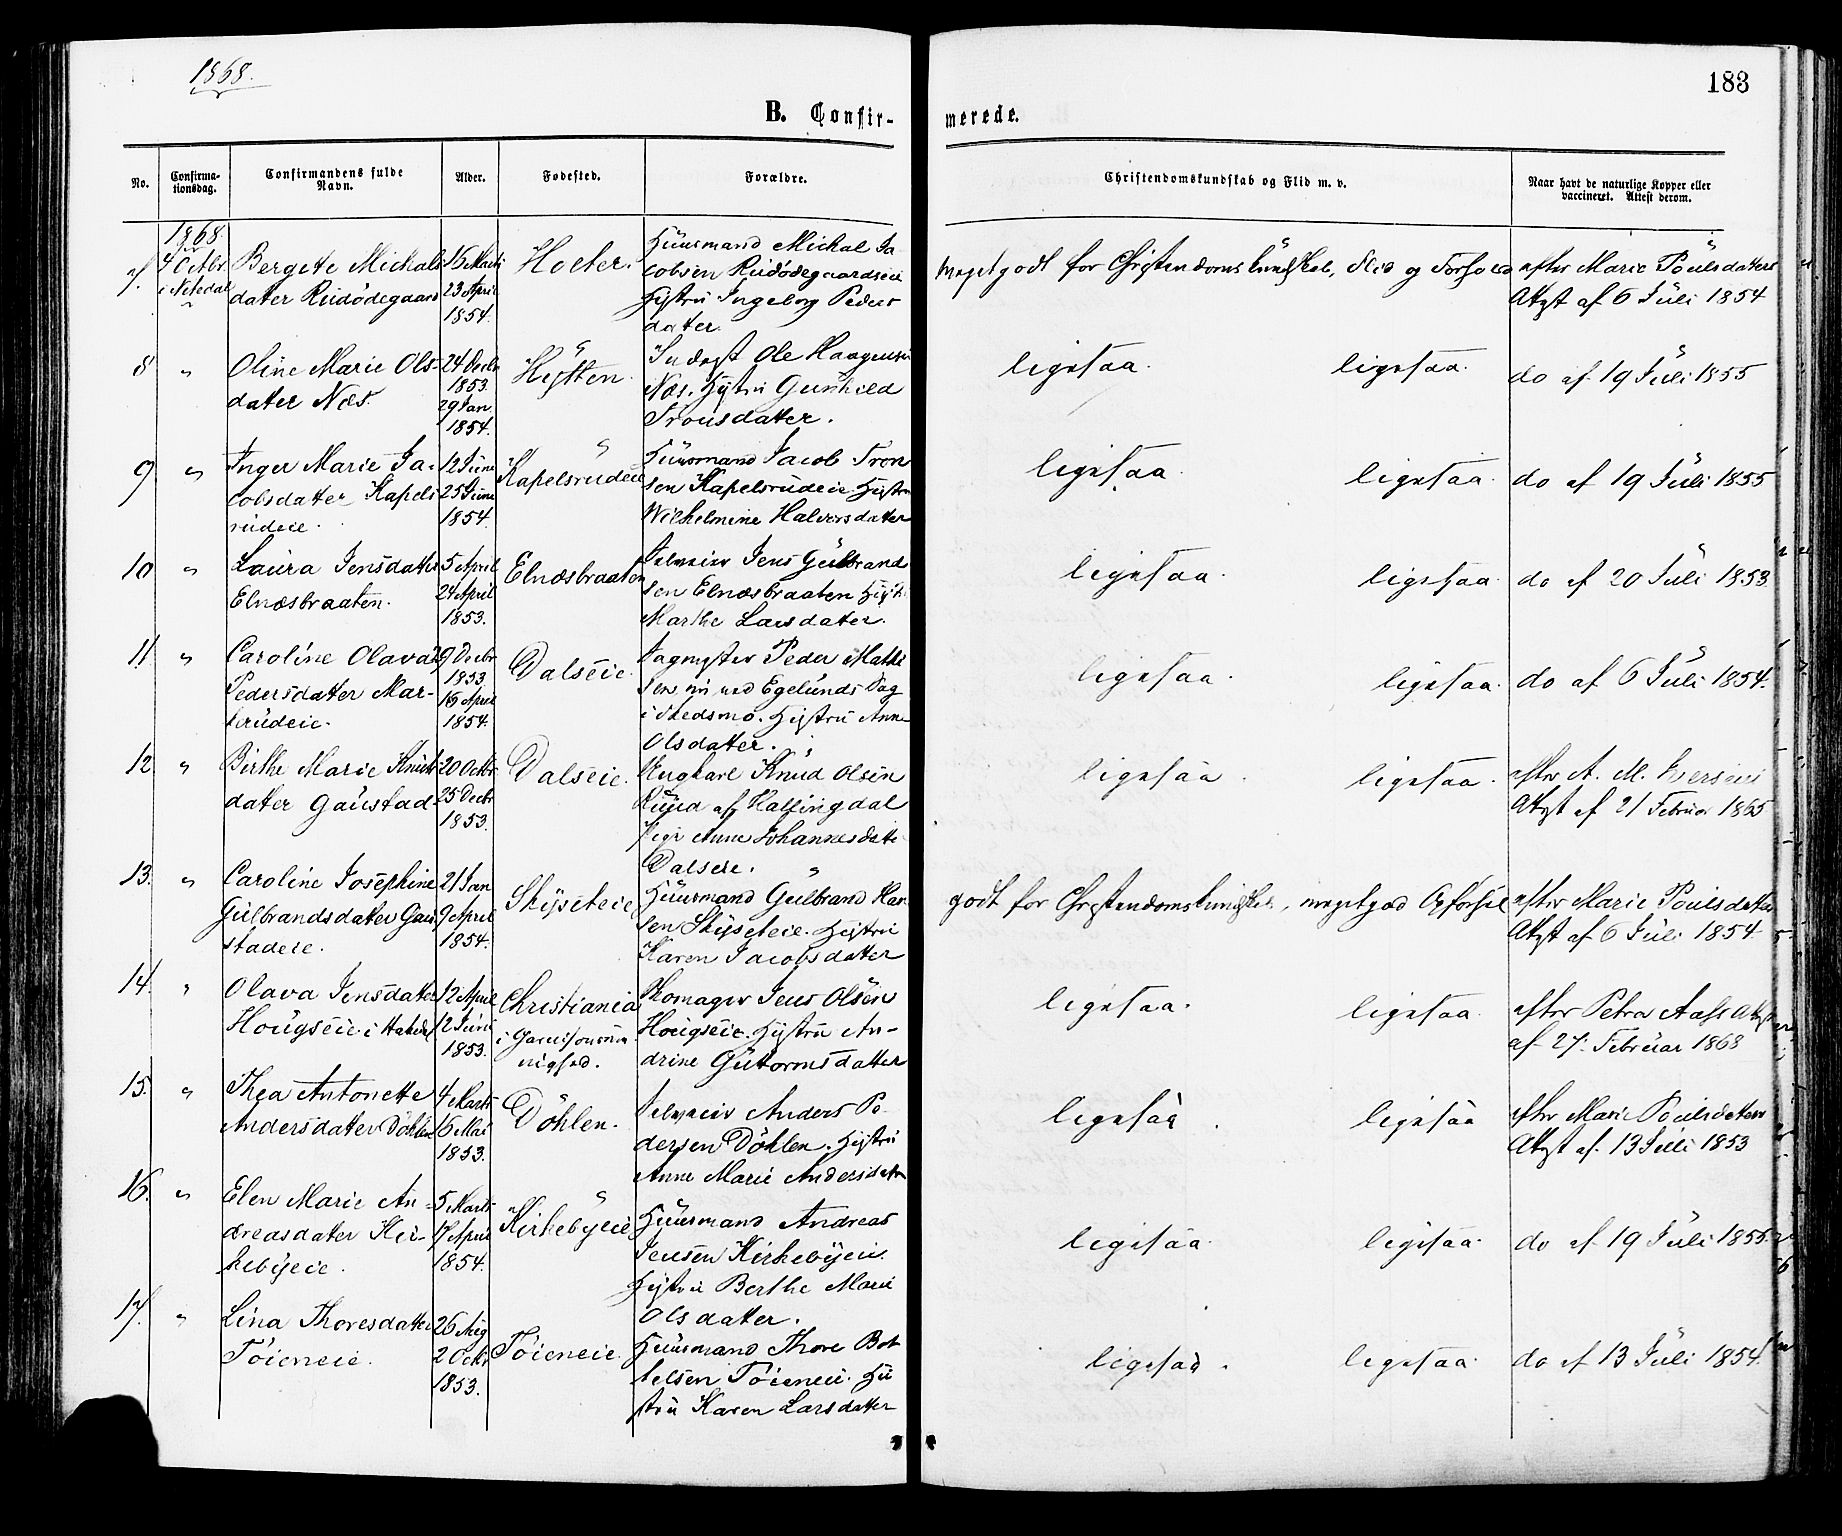 1868.
183
B. Confir-
merede.
No.
Confirma-
tionsdag.
Confirmandens fulde
Navn.
Alder.
Fødested.
Forældre.
Christendomskundskab og Flid m. v.
Naar havt de naturlige Kopper eller
vaccineret. Attest derom.
7.
1868
4 Octbr
i Nitedal
Bergete Michals
dater Rüdödegaard
16 Marts
23 April
1854.
Holter.
Hüusmand Michal Ja-
cobsen Rüdödegaardseie
Hustrü Ingeborg Peders
dater.
meget godt for Christendomskündskab, Flid og Forhold
efter Marie Poülsdatters
Attest af 6 Jüli 1854
8
"
Oline Marie Ols-
dater Næs.
24 Decbr
1853.
29 Jan
1854.
Ole Haagensen
Næs. Hustrü Günhild
Tronsdatter.
ligesaa.
ligesaa.
do af 19 Jüli 1855
9
"
Inger Marie Ja-
cobsdatter Kapels
rüdeie.
12 Jüne
25 Jüne
1854.
Kapelsrüdeie
Hüusmand Jacob Tron
sen Kapelsrüdeie. Hustrü
Wilhelmine Halvorsdatter
ligesaa.
ligesaa.
do af 19 Jüli 1855
10
"
Laüra Jensdatter
Elnæsbraaten.
5 April
24 April
1853.
Elnæsbraaten
Selveier Jens Gülbrand
sen Elnæsbraaten
Marthe Larsdatter.
ligesaa.
ligesaa.
do af 20 Jüli 1853
11.
"
Caroline Olava
Pedersdatter Mar-
terüdeie.
9 Decbr
1853.
16 April
1854.
Dalseie.
Sagmester Peder Mathi
sen nü ved Egelünds Sag
i Skedsmo. Hustrü Anne
Olsdatter.
ligesaa.
ligesaa.
do af 6 Jüli 1854.
12
"
Birthe Marie Knüds
dater Gaüstad
20 Octbr
25 Decbr
1853.
Dalseie.
Ungkarl Knüd Olsen
af Hallingdal
Pige Anne Johannesdatter
Dalseie.
ligesaa.
ligesaa.
efter A. M. Iversens
Attest af 21 Februar 1865
13.
"
Caroline Josephine
Gülbrandsdater Gaü
stadeie.
21 Jan
9 April
1854.
Skÿseteie
Hüusmand Gülbrand Han
sen Skÿseteie. Hustrü
Karen Jacobsdatter
godt for Christendomskundskab, meget god Opförsel
efter Marie Poülsdatters
Attest af 6 Jüli 1854
14.
"
Olava Jensdater
Hoügseie i Hakedal
12 April
12 Jüni
1853.
Christiania
i Garnisonsme
nighed.
Skomager Jens Olsen
Hoügseie. Hustrü An-
drine Gütormsdatter
ligesaa.
ligesaa.
efter Petra Aass Attest
af 27. Februar 1868
15.
"
Thea Antonette
Andersdater Döhlen
4 Marts
16 Mai
1853.
Döhlen.
Selveier Anders Pe-
dersen Döhlen. Hustrü
Anne Marie Andersdatter
ligesaa.
ligesaa
efter Marie Poülsdatters
Attest af 13 Jüli 1853
16.
"
Elen Marie An-
dreasdater Kir-
kebÿeie.
5 Marts
17 April
1854.
Kirkebÿeie
Hüusmand Andreas
Jensen Kirkebÿeie.
Hustrü Berthe Marie
Olsdatter.
ligesaa.
ligesaa.
do af 19 Jüli 1855.
17.
"
Lina Thoresdatter
Töieneie.
26 Aüg
2 Octbr
1853.
Töieneie.
Hüusmand Thore Bot
telsen Töieneie. Hü
strü Karen Larsdatter
ligesaa.
ligesaa.
do af 13 Jüli 1854.